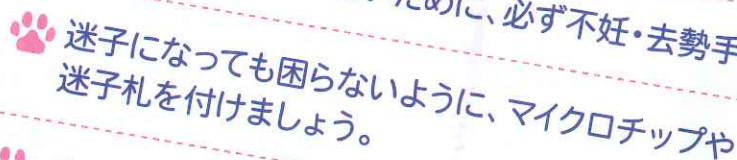 ために、必ず不妊・去勢手
迷子になっても困らないように、マイクロチップや
迷子札を付けましょう。